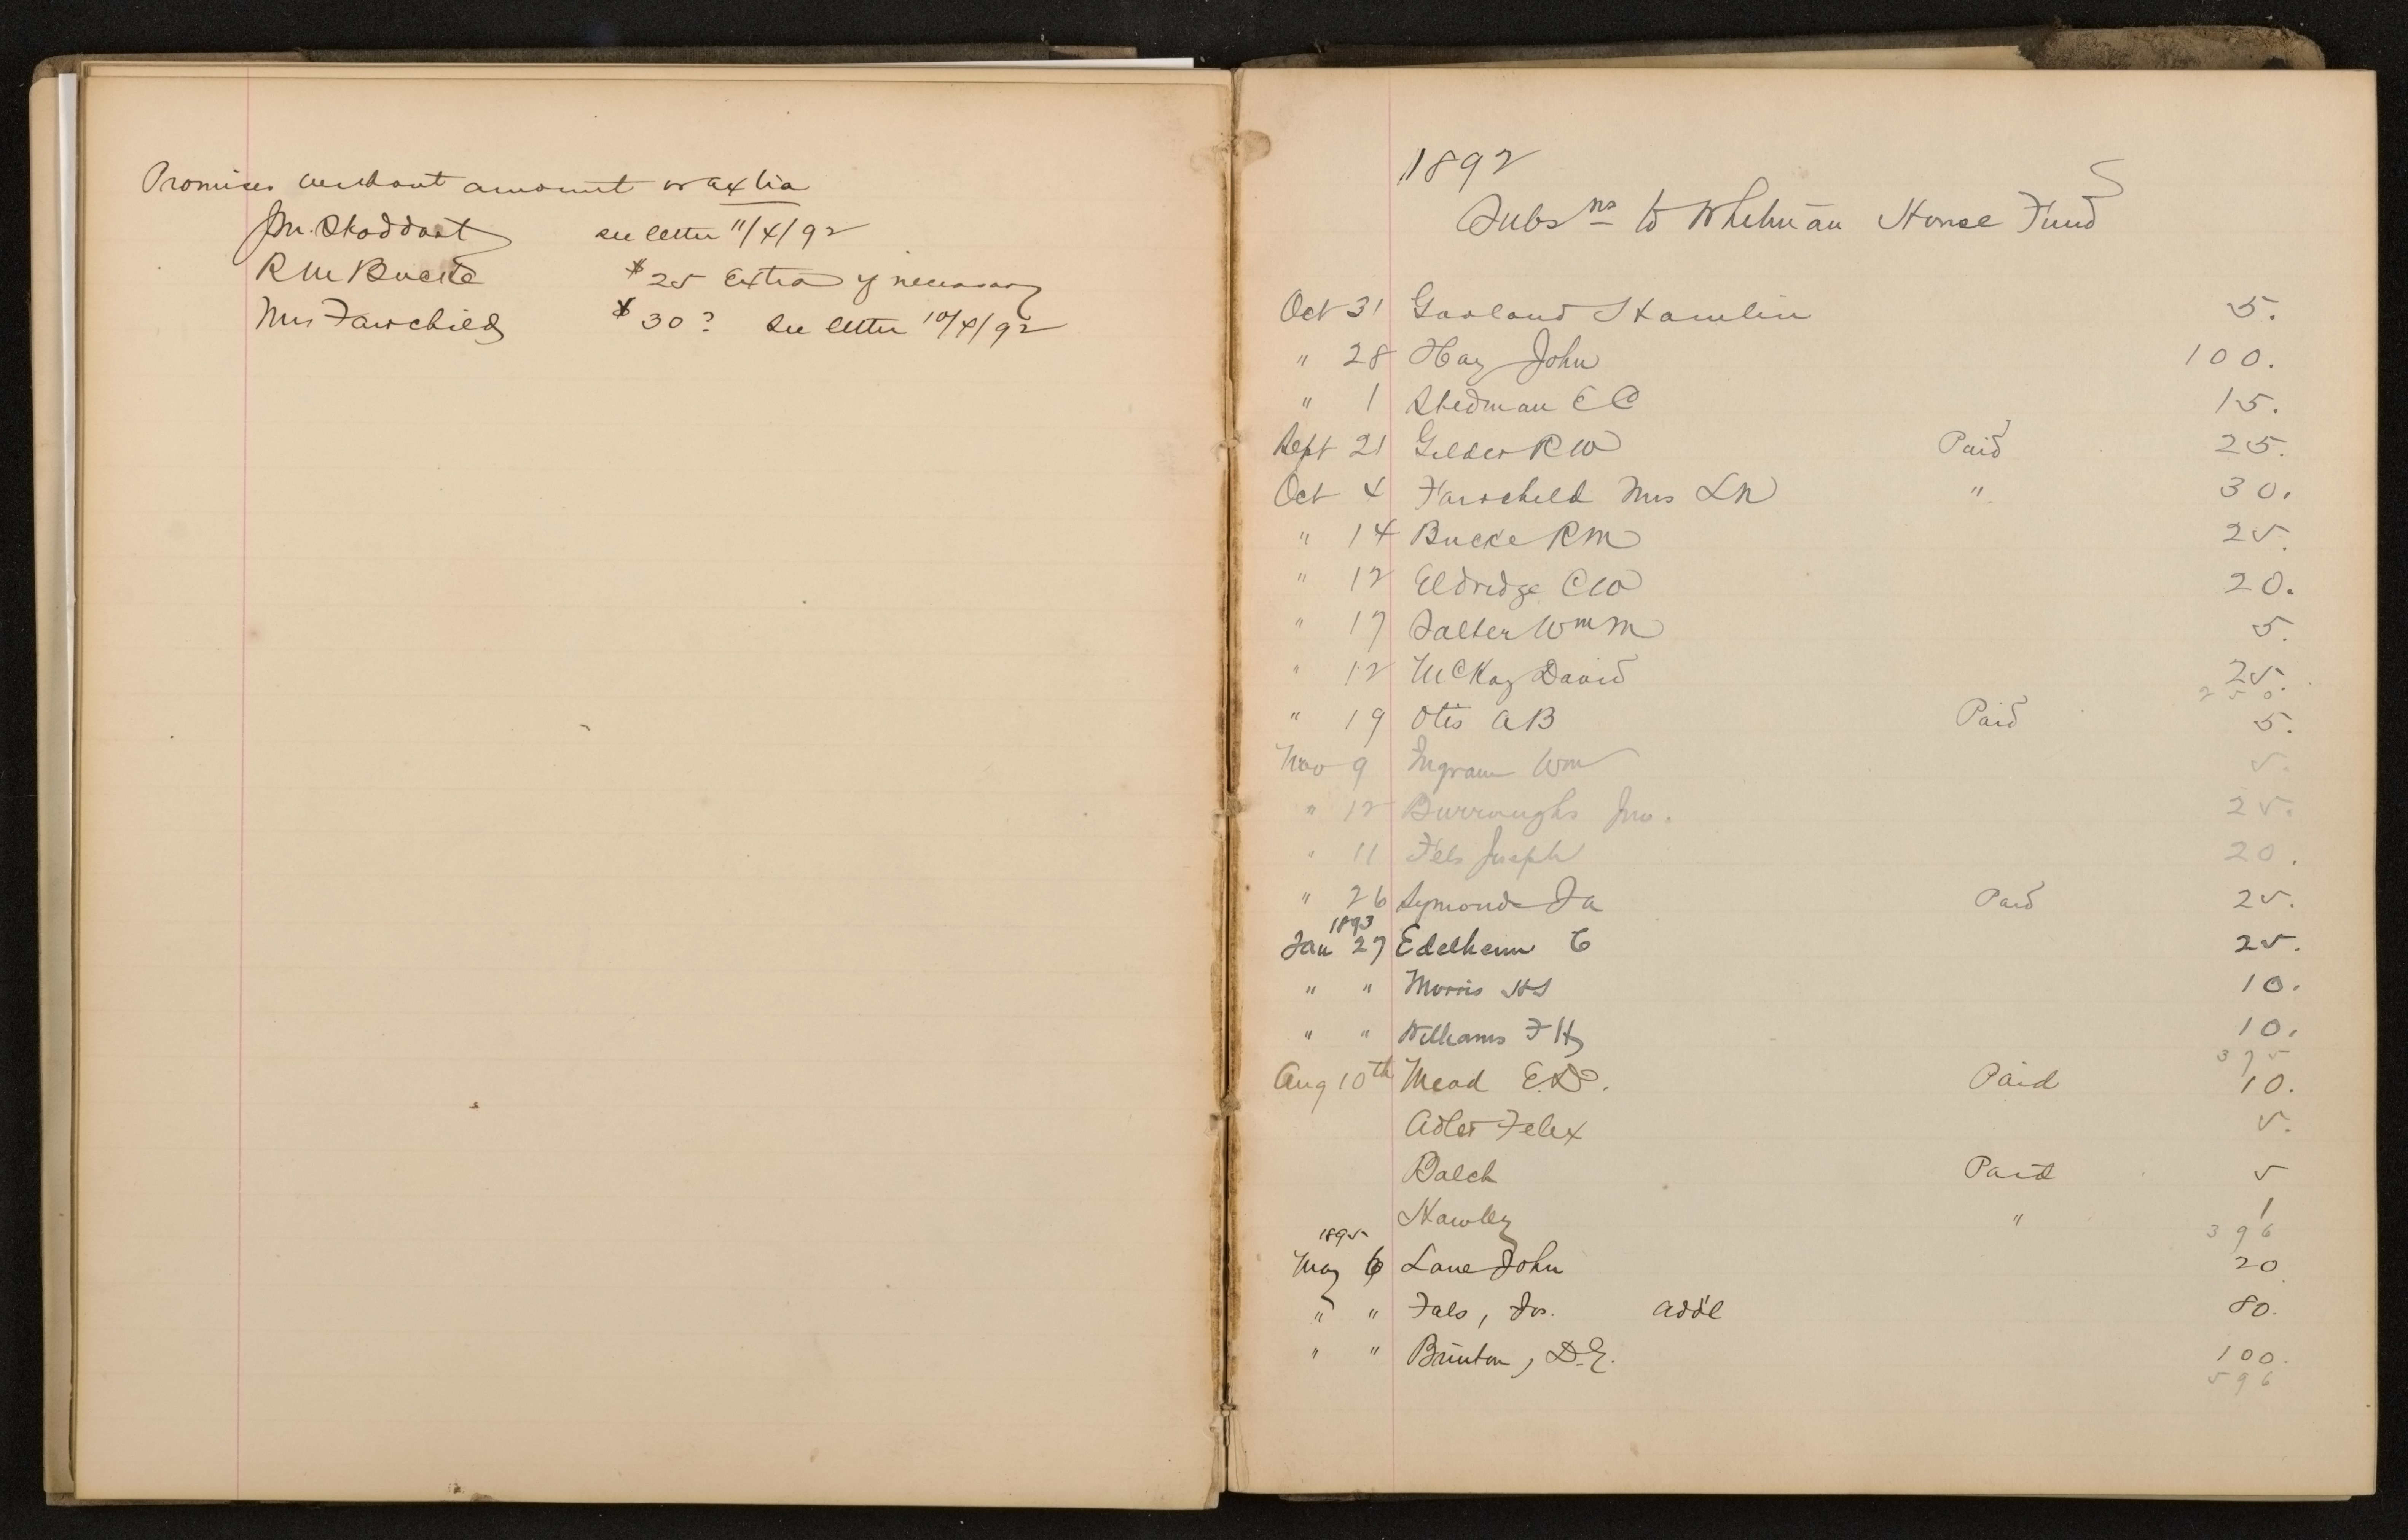 Promises without amount or extra
Jm. Stoddart see letter 11/4/92
R M Bucke $25 extra if necessary
Mrs Fairchild $30? See letter 10/4/92
1892
Subsns to Whitman House Fund
Oct 31 Garland Hamlin 5.
" 28 Hay John 100.
" 1 Stedman E C 15.
Sept 21 Gilder R W Paid 25.
Oct 4 Fairchild Mrs L N " 30.
" 14 Bucke R M 25.
" 12 Eldridge C W 20.
" 17 Salter Wm M 5.
" 12 McKay David 25.
250
" 19 Otis A B Paid 5.
Nov 9 Ingram Wm 5.
" 12 Burroughs Jno. 25.
" 11 Fels Joseph 20.
" 26 Symonds J A Paid 25.
1893
Jan 27 Edelheim C 25.
" " Morris H S 10.
" " Williams F H 10.
375
Aug 10th Mead E. D. Paid 10.
Adler Felix 5.
Balch Paid 5
Hawley " 1
396
1895
May 6 Lane John 20
" " Fels, Jos. Add'l 80.
" " Brinton, D. G. 100.
596